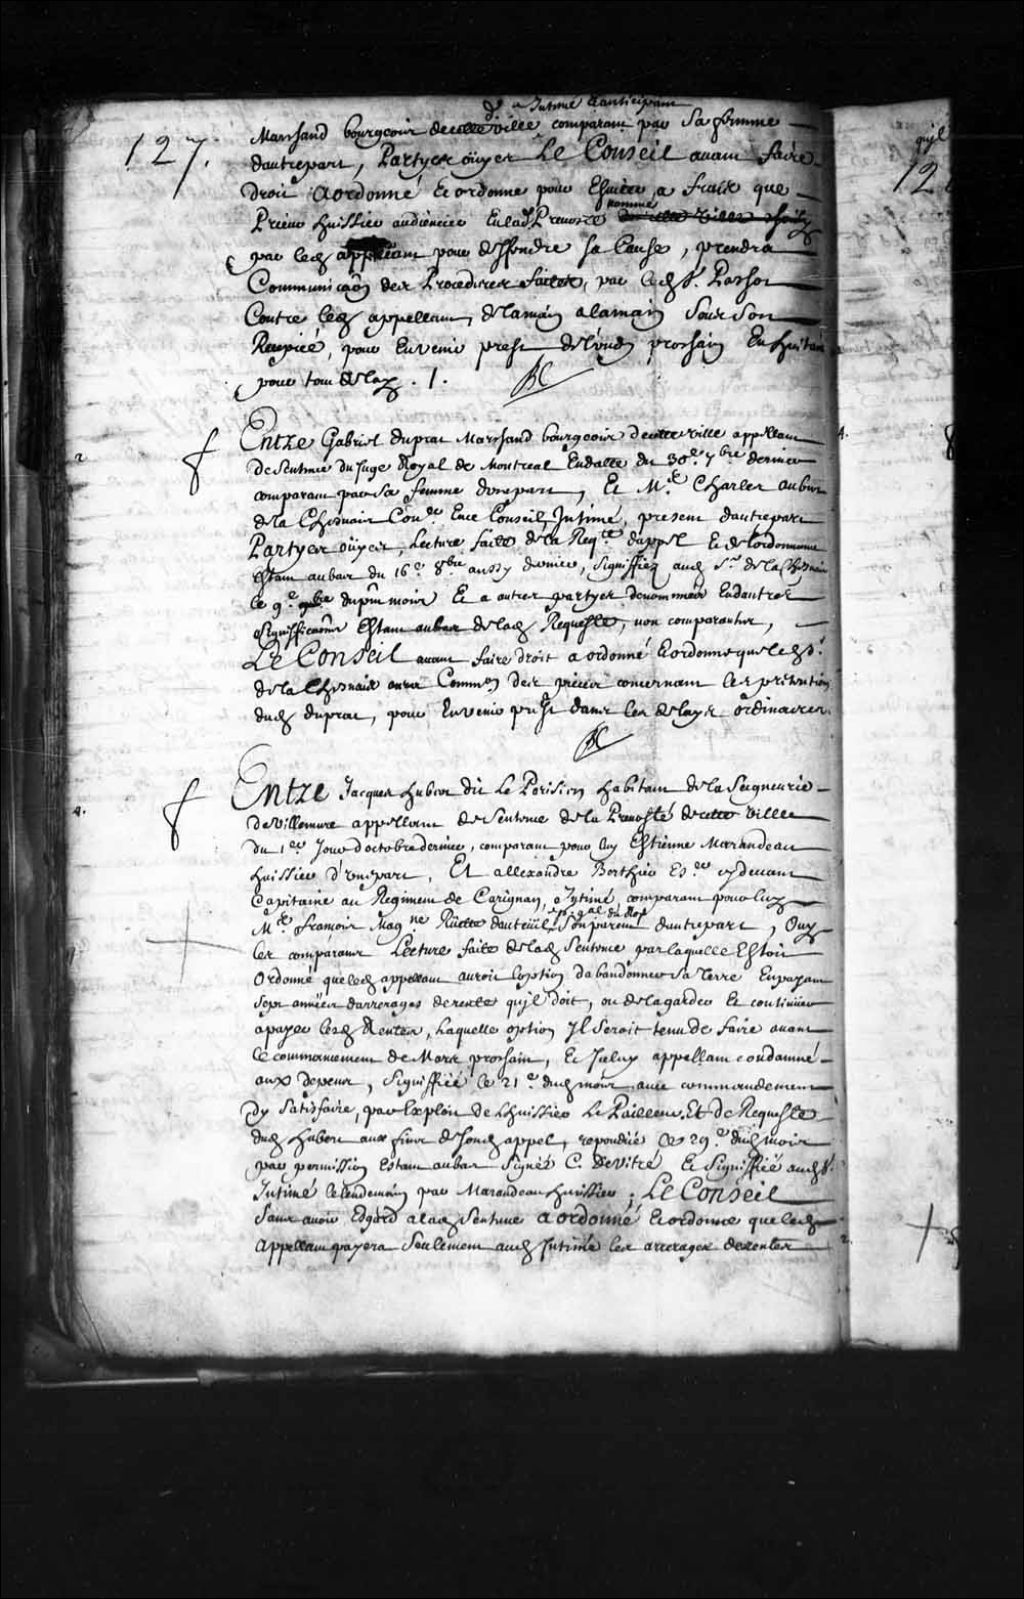 127.
d. Intimé & anticipant
Marchand bourgeois de cette ville comparant par Sa femme
dautrepart, Partyes oüyes Le Conseil auant faire
droit a ordonné Et ordonne pour Espices a frais que
nommé
Prieur huissier audiencier En lad. Preuosté
par led. appellant pour deffendre Sa Cause, prendra
Communicaōn des Procedures faites, par led. Sr.
Contre led. appellant, de la main a la main Sous Son
Recepicé, pour En venir prest de Lundy prochain En huitaine
pour tout delay . / .
Entre Gabriel duprat Marchand bourgeois de cette ville appellant
de Sentence du Juge Royal de Montreal En datte du 30e. 7bre dernier
comparant par Sa femme dunepart, Et Me. Charles aubert
de la Chesnaie Coner. En ce Conseil Intimé, present dautrepart
Partyes oüyes, Lecture faite de la Reqte. dappel Et de lordonnance
Estant au bas du 16e. 8bre aussy dernier, Signiffiez aud. Sr. de la Chesnaie
le 9e. du pñt mois Et a autres partyes denommées En dautres
Signifficaōns Estant au bas de lad. Requeste, non comparantes,
Le Conseil auant faire droit a ordonné Et ordonne que led. Sr.
de la Chesnaie aura Commōn des pieces concernant les prétentions
dud. duprat, pour En venir prest dans les delays ordinaires.
Entre Jacques hubert dit Le Parisien habitant de la Seigneurie
de Villemure appellant de Sentence de la Preuosté de cette Ville
du 1er. Jour doctobre dernier, comparant pour luy Estienne Marandeau
huissier d'unepart, Et allexandre Berthier Eser. cy deuant
Capitaine au Regiment de Carignan, Intimé, comparant pour luy
Me. françois Magne. Rüette dauteüil, pr. gal. du Roy Son parent dautrepart, Ouy
les comparans Lecture faite de lad. Sentence par laquelle Estoit
Ordonné que led. appellant auroit loption dabandonner Sa Terre En payant
Sept années darrerages de rente qujl doit, ou de la garder Et continüer
a payer lesd. Rentes, Laquelle option Jl Seroit tenu de faire auant
le commancement de Mars prochain, Et Jceluy appellant condamné
aux depens, Signiffiée le 21e. dud. mois auec commandement
dy Satisfaire, par Exploit de Lhuissier Le Pailleur, Et de Requeste
dud. hubert aux fins de Sond. appel, repondüe le 29e. dud. mois
par permission Estant au bas Signée C. Devitré Et Signiffiée aud. Sr.
Intimé le lendemain par Marandeau huissier ; Le Conseil
Sans auoir Egard a lad. Sentence a ordonné Et ordonne que led.
appellant payera Seulement aud. Intimé les arrerages de rentes
qujl
12